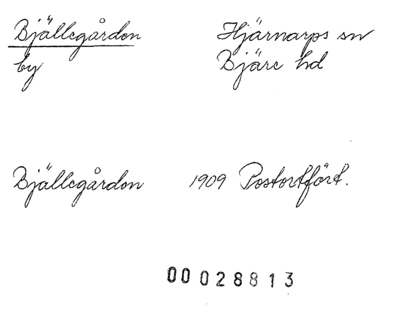 Bjällegården Hjärnarps sn
by Bjäre hd
Bjällegården 1909 Postortfört.
00028813